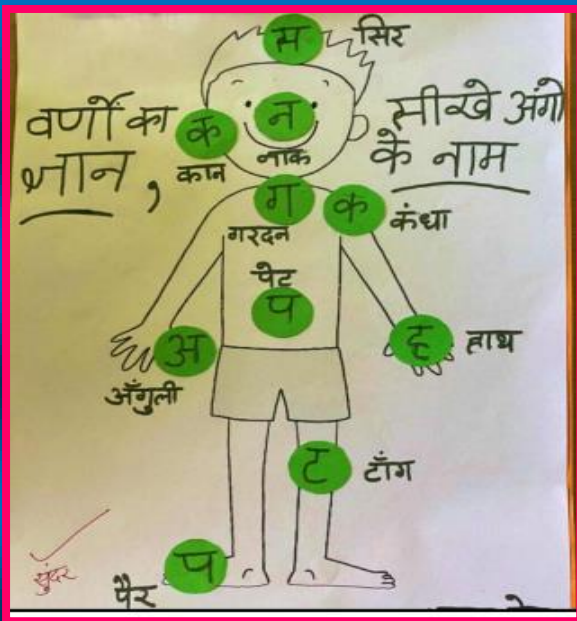 स सिर
वर्णों का
ज्ञान,
सीखे अंगो
के नाम
क
कान
न
नाक
ग
गरदन
क कंधा
पेट
प
अ
अँगुली
ह हाथ
ट टाँग
प
पैर
सुंदर